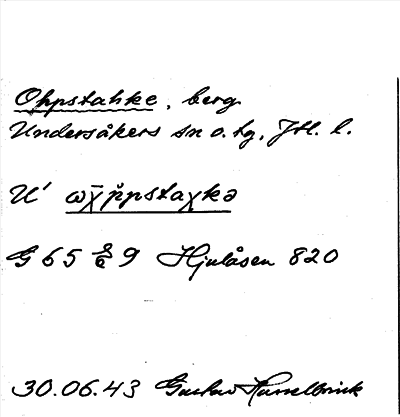 Ohpstahke, berg.
Undersåkers sn o. tg, Jtl. l.
U' ωχ̄p̊pstaχkə
G 65 9 Hjulåsen 820
30.06.43 Gustav Hasselbrink